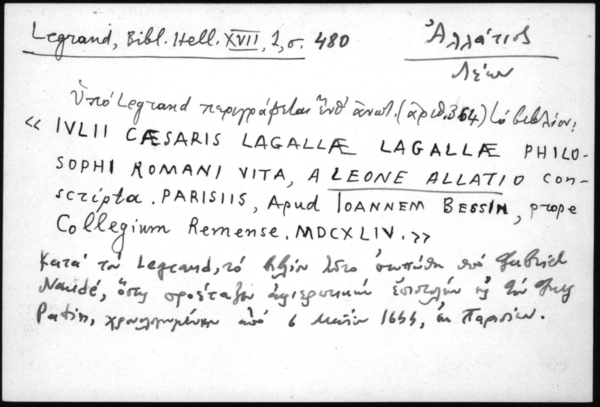 Legrand, Bibl. Hell. XVII, 1, σ. 480
Ἀλλάτιος
Λέων
Ὑπὸ Legrand περιγράφεται ἔνθ' ἀνωτ. (ἀριθ. 354) τὸ βιβλίον:
« IVLII CÆSARIS LAGALLÆ LAGALLÆ PHILO-
SOPHI ROMANI VITA, A LEONE ALLATIO con-
scripta. PARISIIS, Apud IOANNEM BESSIN, prope
Collegium Remense. MDCXLIV. »
Κατὰ τὸν Legrand, τὸ βιβλίον τοῦτο ὑπὸ Gabriel
Naudé, ὅστις προέταξεν ἀφιερωτικὴν ἐπιστολὴν Guy
Patin, χρονολογημένην ἀπὸ 6 1644, ἐκ Παρισίων.